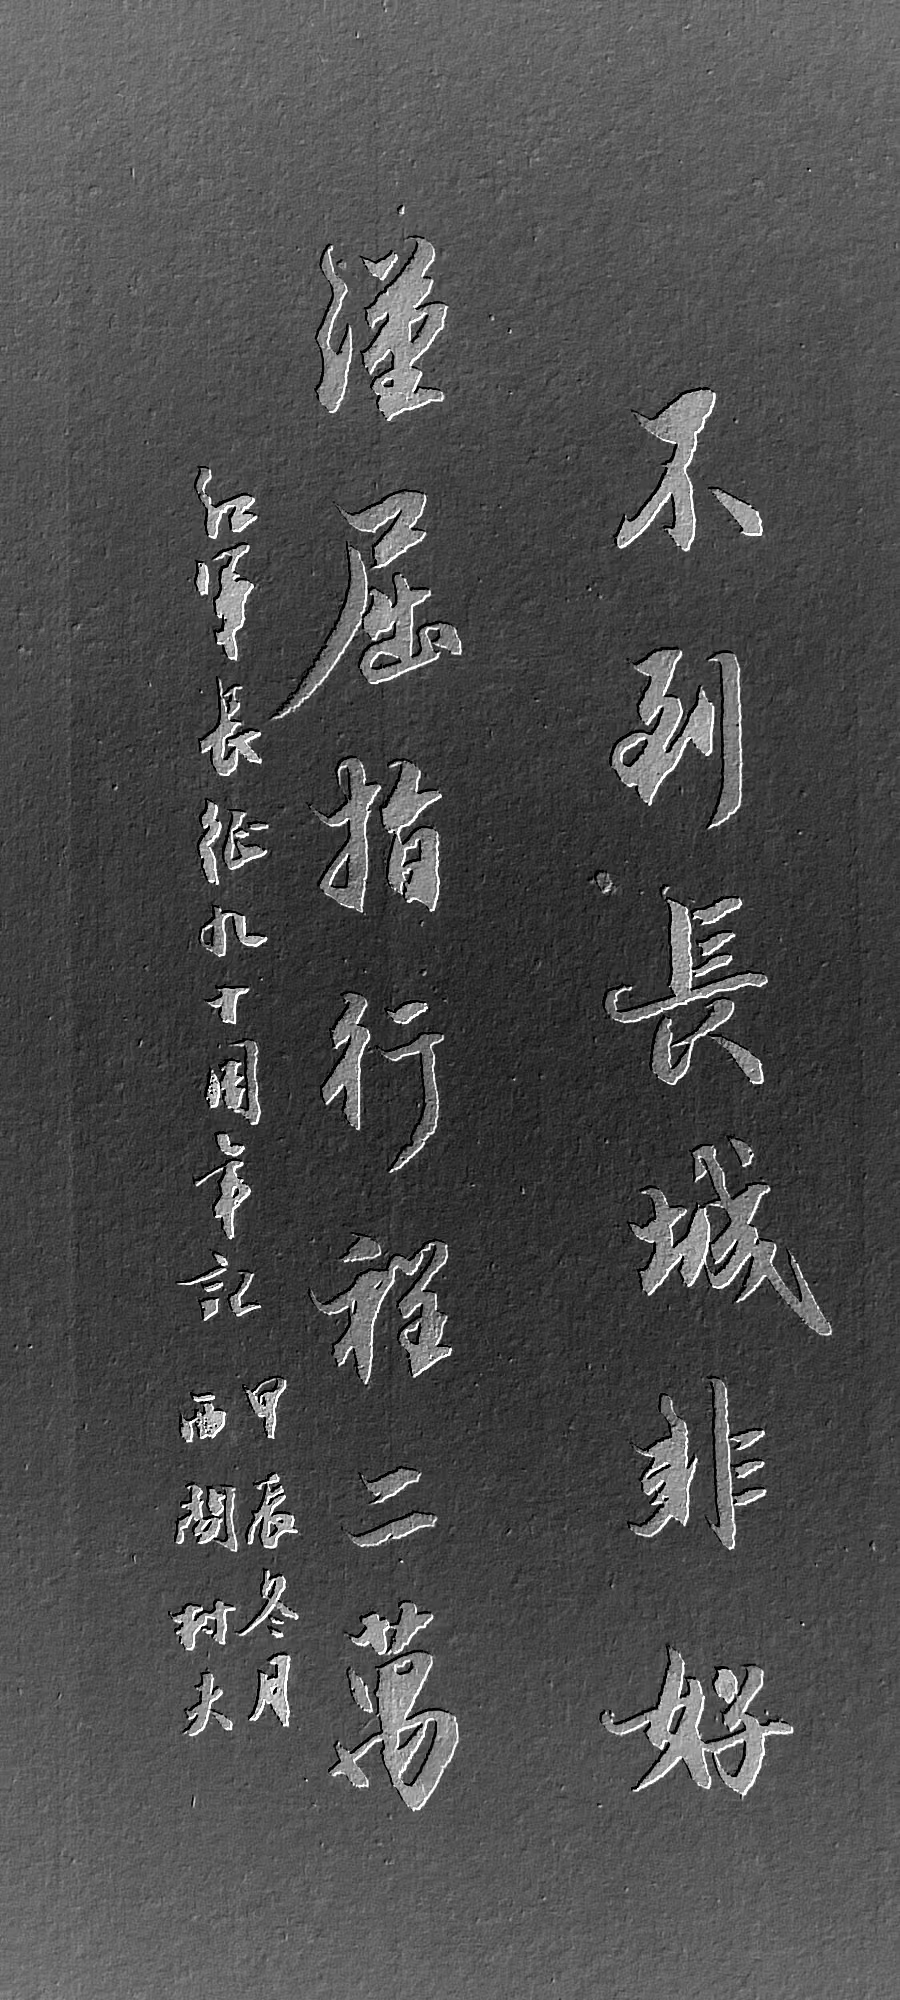 不到長城非好
漢屈指行程二萬
紅軍長征九十周年記
甲辰冬月
西閣村夫